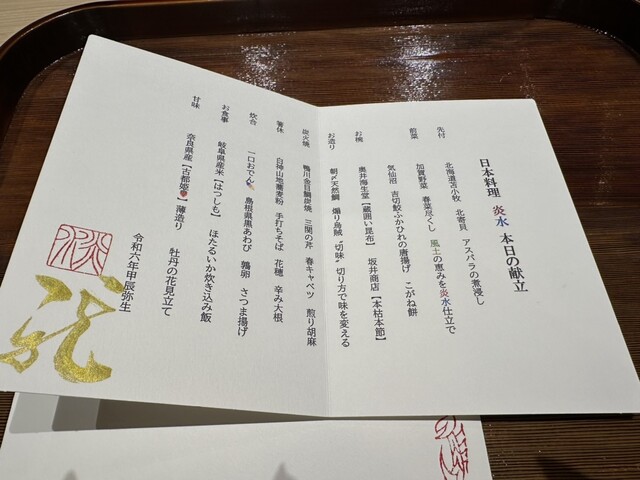 日本料理 炎水 本日の献立
先付 北海道苫小牧 北寄貝 アスパラの煮浸し
前菜 加賀野菜 春菜尽くし 風土の恵みを炎水仕立で
気仙沼 吉切鮫ふかひれの唐揚げ こがね餅
お椀 奥井海生堂【蔵囲い昆布】 坂井商店【本枯本節】
お造り 朝〆天然鯛 煽り烏賊 〝切味〟切り方で味を変える
炭火焼 鴨川金目鯛炭焼 三関の芹 春キャベツ 煎り胡麻
箸休 白神山地蕎麦粉 手打ちそば 花穂 辛み大根
炊合 一口おでん 島根県黒あわび 鶉卵 さつま揚げ
お食事 岐阜県産米【はつしも】 ほたるいか炊き込み飯
甘味 奈良県産【古都姫】薄造り 牡丹の花見立て
令和六年甲辰弥生